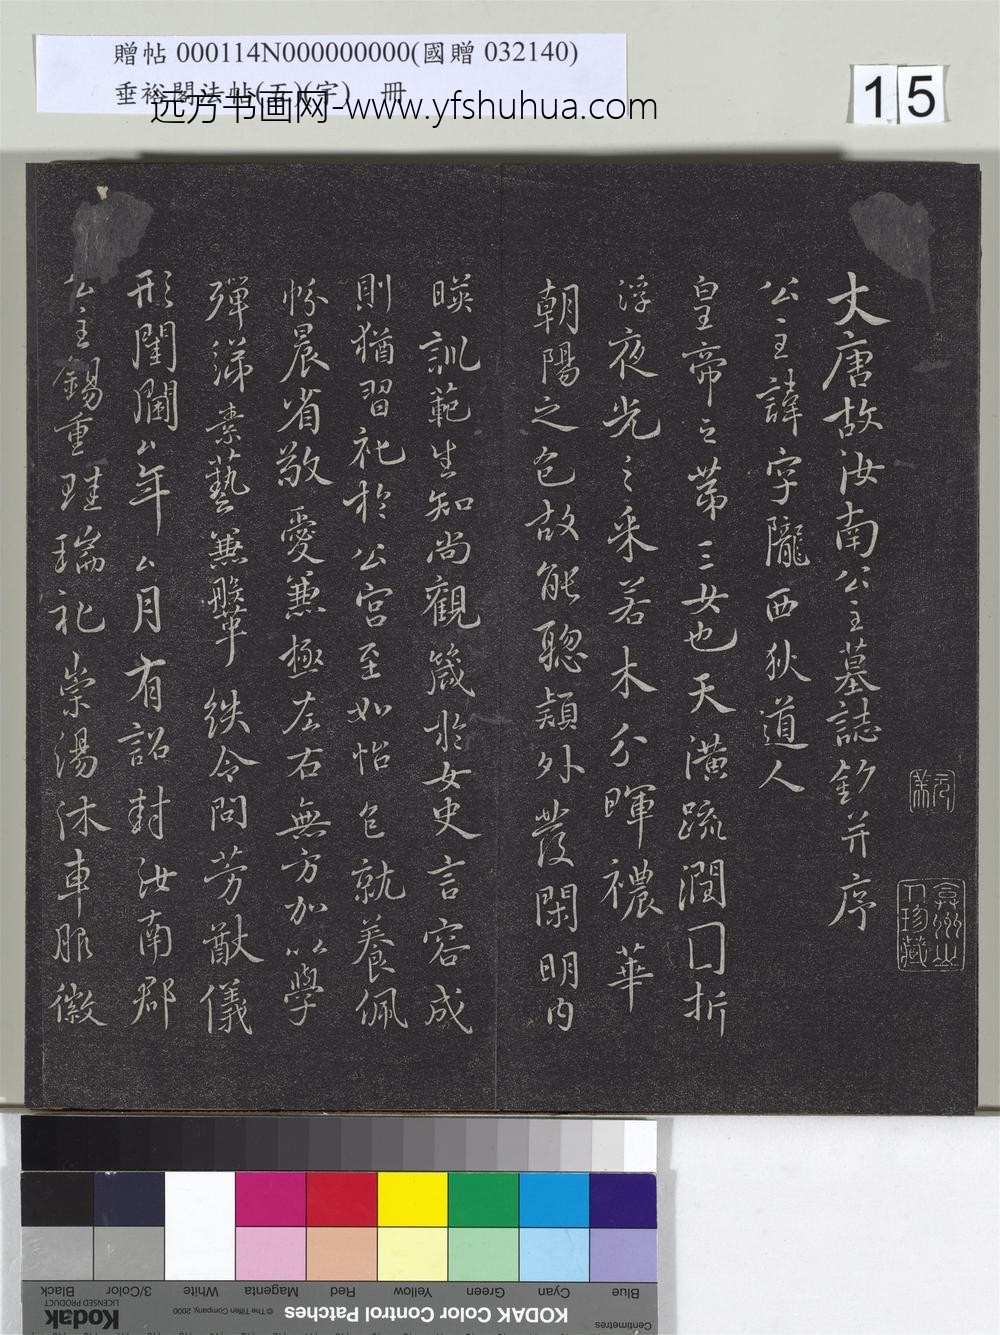 贈帖 000114N000000000(國贈 032140)
垂裕閣法帖(五)(宇) 冊
远方书画网-www.yfshuhua.com
15
大唐故汝南公主墓誌銘并序
公主諱字隴西狄道人
皇帝之第三女也天潢疏潤囗折
浮夜光之采若木分暉穠華
朝陽之色故能聰穎外發閑明內
暎訓範生知尚觀箴於女史言容成
則猶習礼於公宮至如怡色就養佩
帉晨省敬愛兼極左右無方加以學
殫綈素藝兼鞶紩令問芳猷儀
形閨閫厶年厶月有詔封汝南郡
公主錫重珪瑞礼崇湯沐車服徽
弇州山
人珍藏
Blue
Cyan
Green
Yellow
Red
Magenta
White
3/Color
Black
KODAK Color Control Patches
© The Tiffen Company, 2000
Kodak
LICENSED PRODUCT
Centimetres